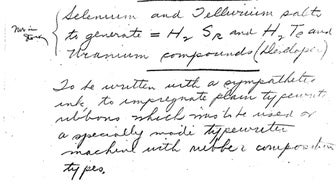 Selenium and Tellurium salts
to generate = H2 SR and H2 Te and
Uranium compounds (Developer)
To be written with a sympathetic
ink to impregnate plain typewrit
ribbons which is to be used or
a specially made typewriter
machine with rubber composition
types.